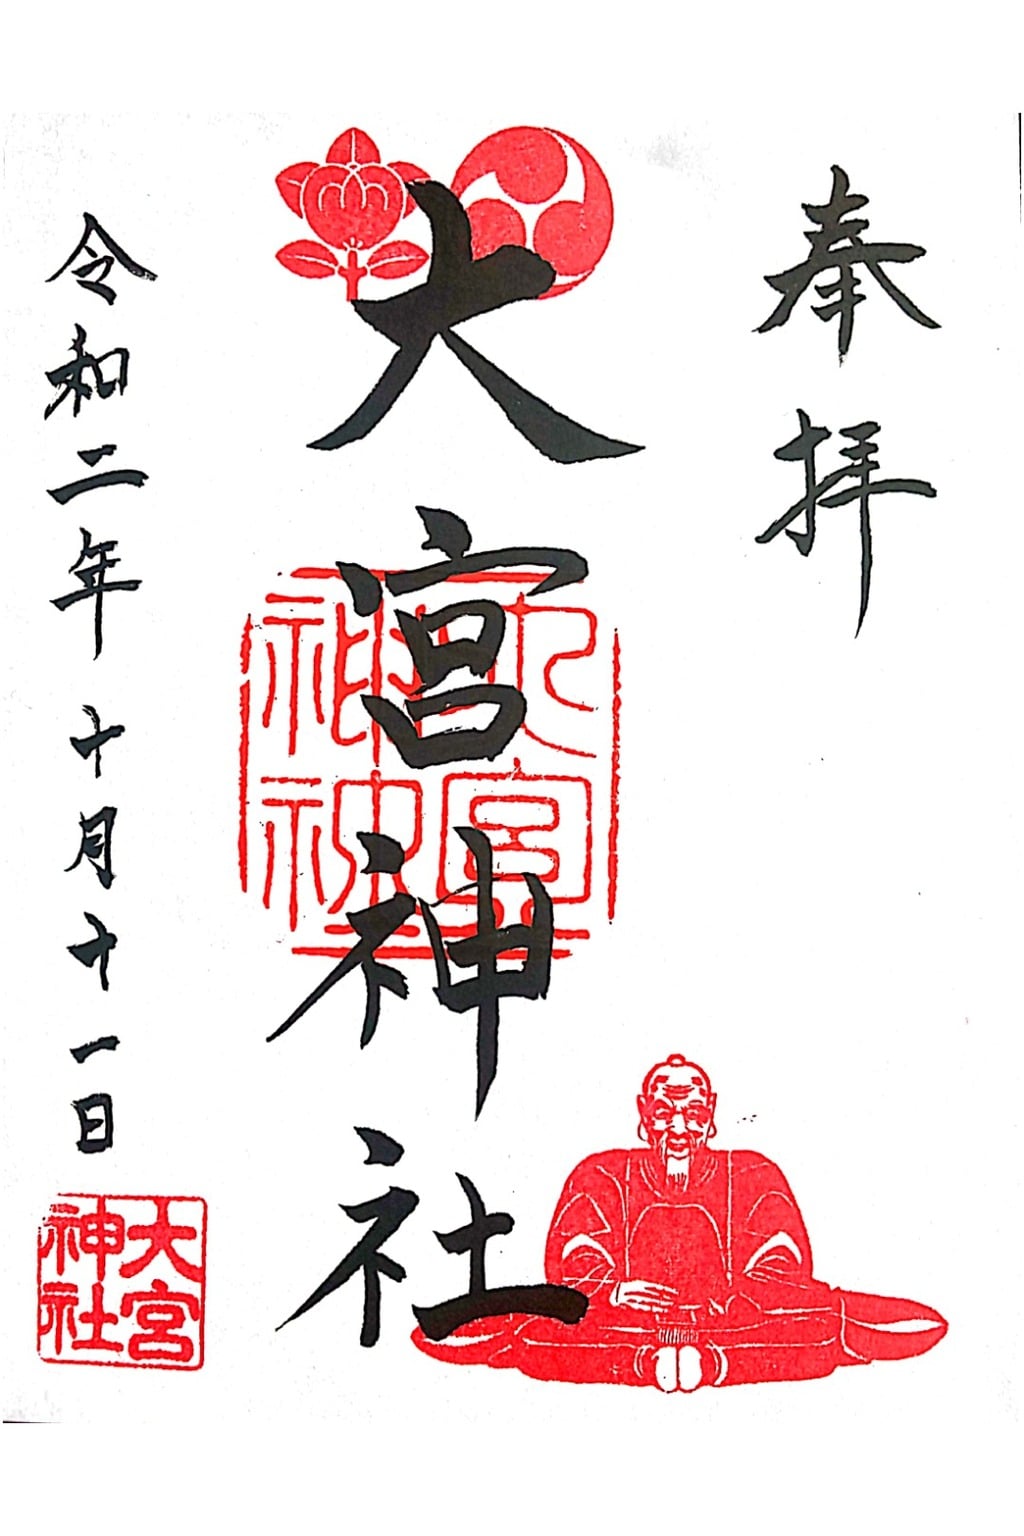 奉拝
大宮神社
令和二年十月十一日
大宮
神社